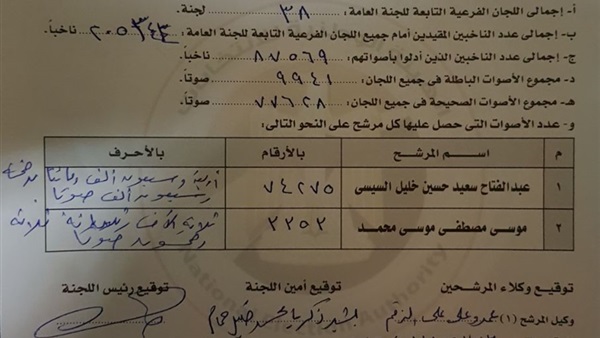 أ- إجمالى اللجان الفرعية التابعة للجنة العامة: ٣٨ لجنة.
ب- إجمالى عدد الناخبين المقيدين أمام جميع اللجان الفرعية التابعة للجنة العامة: ٢٠٥٣٤٣ ناخباً.
ج- إجمالى عدد الناخبين الذين أدلوا بأصواتهم: ٨٧٥٦٩ ناخباً.
د- مجموع الأصوات الباطلة فى جميع اللجان: ٩٩٤١ صوتاً.
هـ- مجموع الأصوات الصحيحة فى جميع اللجان: ٧٧٦٢٨ صوتاً.
و- عدد الأصوات التى حصل عليها كل مرشح على النحو التالى:
م اسـم المرشـح بالأرقام بالأحرف
١ عبدالفتاح سعيد حسين خليل السيسى ٧٤٢٧٥ أربعة وسبعون ألف ومائتا وخمسة
وسبعون ألف صوتا
٢ موسى مصطفى موسى محمد ٣٣٥٣ ثلاثة آلاف وثلاثة
وخمسون صوتا
توقيع وكلاء المرشحين توقيع أمين اللجنة توقيع رئيس اللجنة
وكيل المرشح (١) على على
National Election Authority